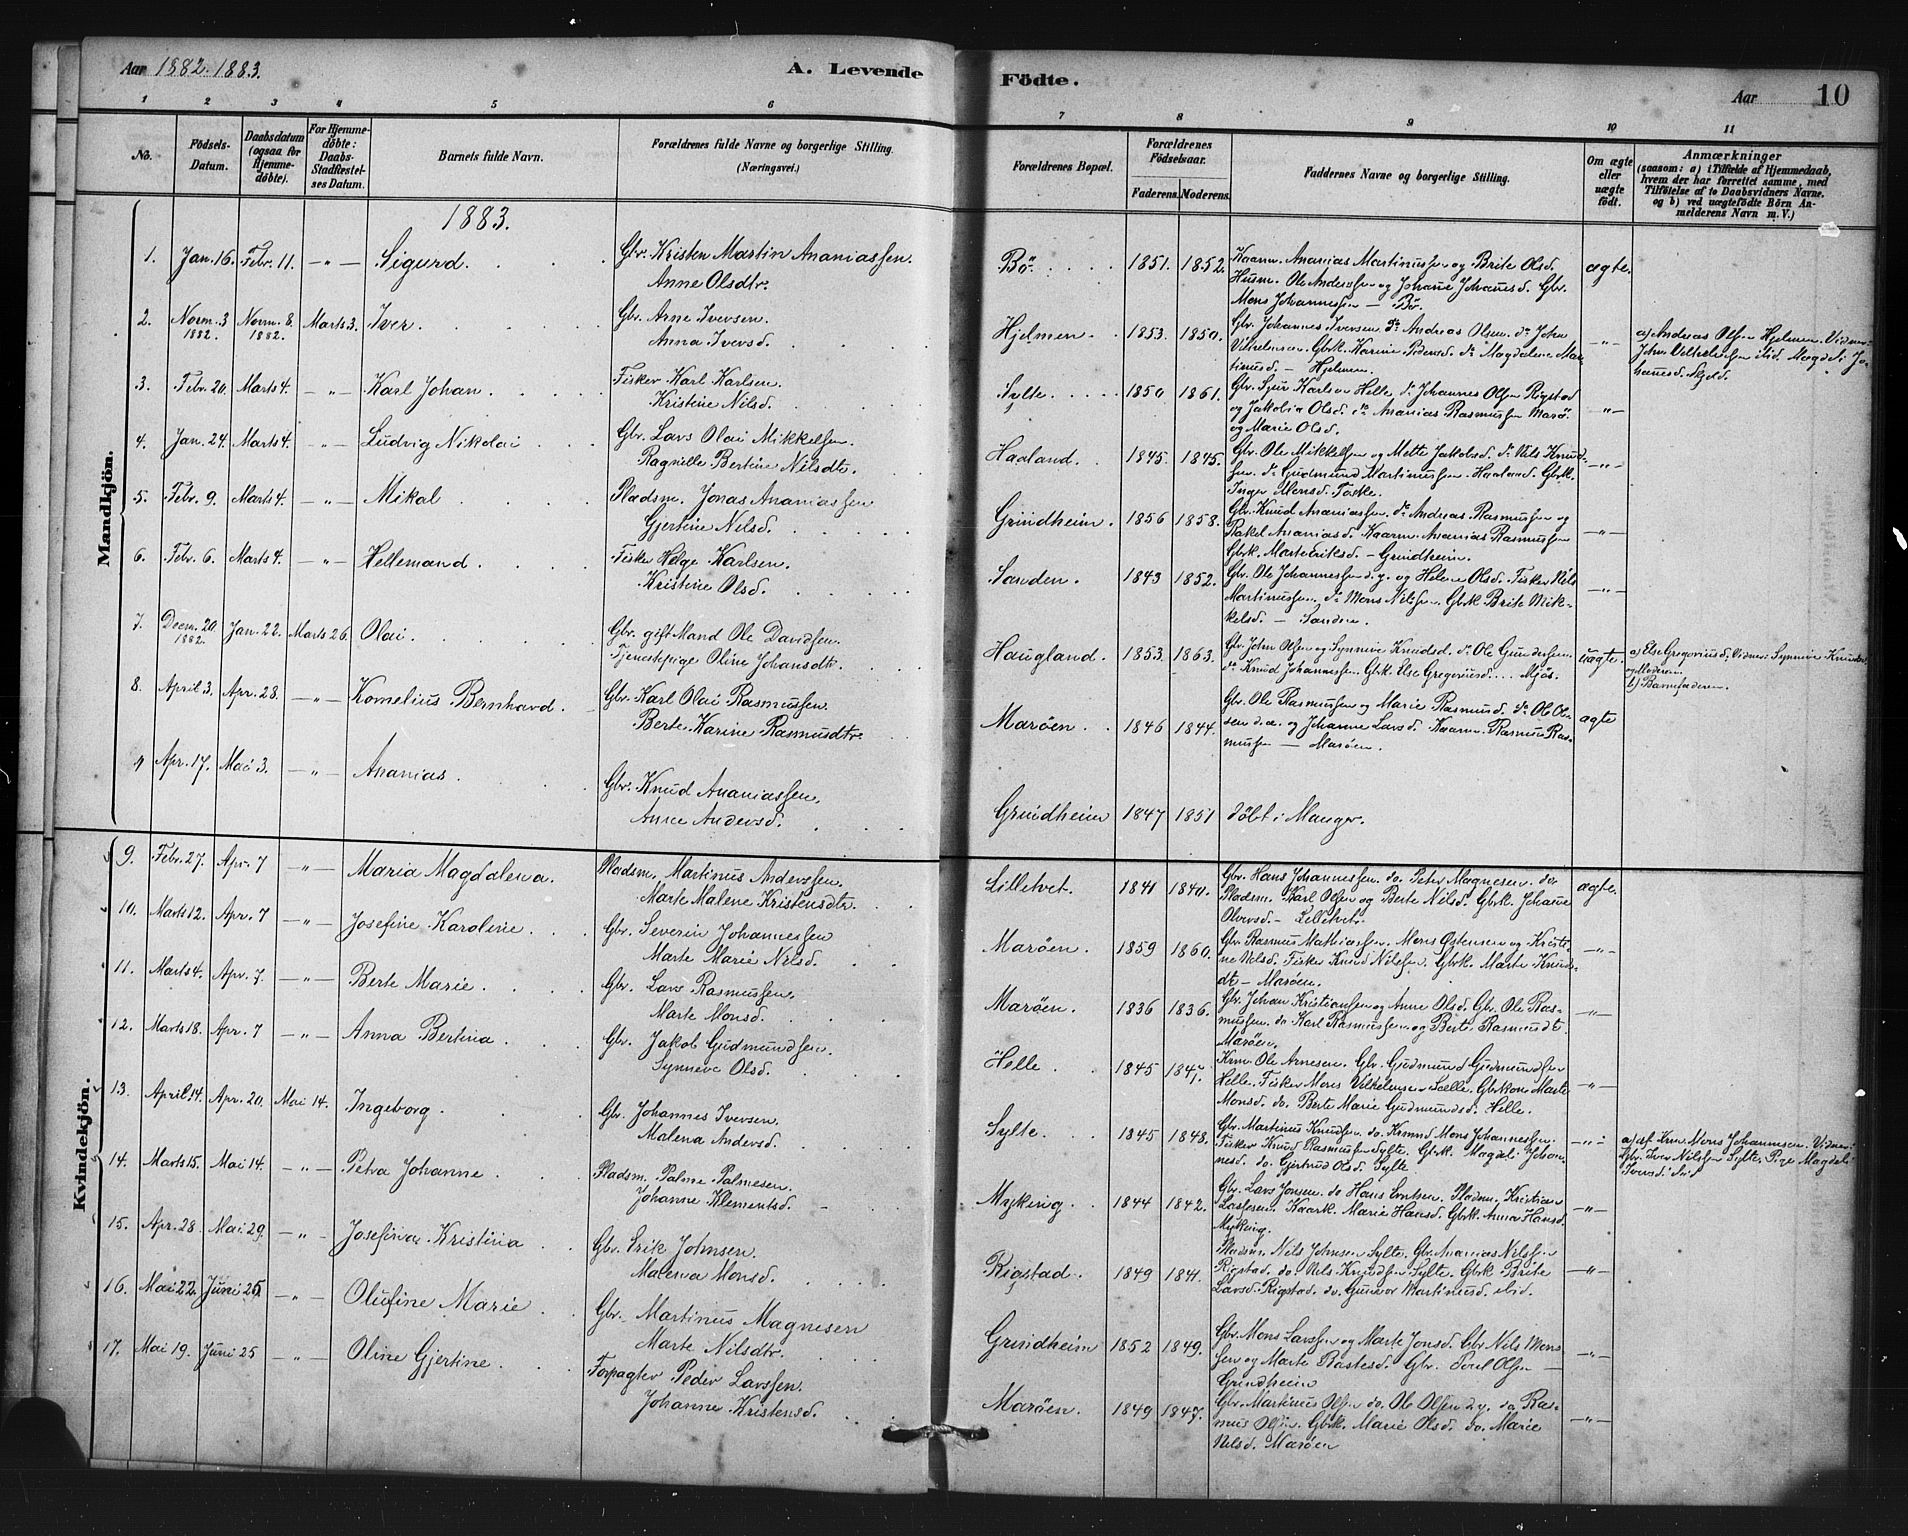 Aar 1882-1883.
A. Levende
Födte.
Aar
10
1 2 3 4 5 6
7 8 9 10 11
No.
Födsels-
Datum.
Daabsdatum
(ogsaa for
Hjemme-
döbte).
For Hjemme-
döbte:
Daabs-
Stadfæstel-
ses Datum.
Barnets fulde Navn.
Forældrenes fulde Navne og borgerlige Stilling.
(Næringsvei.)
Forældrenes Bopæl.
Forældrenes
Födselsaar.
Faderens. Moderens.
Faddernes Navne og borgerlige Stilling.
Om ægte
eller
uægte
födt.
Anmærkninger
(saasom: a) i Tilfælde af Hjemmedaab,
hvem der har forrettet samme, med
Tilföielse af to Daabsvidners Navne.
og b) ved uægtefödte Börn An-
melderens Navn m. V.)
Mandkjön.
1883.
1. Jan. 16. Febr. 11. -"- Sigurd.
Gbr. Kristen Martin Ananiassen.
Anne Olsdtr.
Bö. 1851. 1852.
Kaarm. Ananias Martinussen og Brite Olsd.
Husm. Ole Anderssen og Johane Johanesd. Gbr.
Mons Johannessen - Bö.
ægte.
2. Novm. 3 1882. Novm. 8. 1882. Marts 3. Iver.
Gbr. Arne Iversen.
Anna Iversd.
Hjelmen. 1853. 1850.
Gbr. Johannes Iversen. do Andreas Olsen. do John
Vilhelmsen. Gbrk. Karine Pedersd. do Magdalene Mar-
tinusd. - Hjelmen.
-"-
a) Andreas Olsen Hjelmen. Vidner:
3. Febr. 20. Marts 4. -"- Karl Johan.
Fisker Karl Karlsen.
Kristine Nilsd.
Sylte. 1850 1861.
Gbr. Sjur Karlsen Helle. do Johannes Olsen Rigstad
og Jakobia Olsd. do Ananias Rasmussen Marö.
og Marie Olsd.
-"-
4. Jan. 24. Marts 4. -"- Ludvig Nikolai
Gbr. Lars Olai Mikkelsen.
Ragnille Bertine Nilsdtr.
Haaland. 1845. 1845.
Gbr. Ole Mikkelsen og Mette Jakobsd. do Nils Knud-
sen. do Gudmund Martinussen. Haaland. Gbrk.
Inger Monsd. Toske.
-"-
5. Febr. 9. Marts 4. -"- Mikal
Pladsm. Jonas Ananiassen
Gjertine Nilsd.
Grindheim. 1856 1858.
Gbr. Knud Ananiassen. do Andreas Rasmussen og
Rakel Ananiasd. Kaarm. Ananias Rasmussen
Gbrk. Marte Eriksd. - Grindheim.
-"-
6. Febr. 6. Marts 4. -"- Hellemand.
Fisker Helge Karlsen.
Kristine Olsd.
Sanden. 1843 1852.
Gbr. Ole Johannessen d.y. og Helene Olsd. Fisker Nils
Martinussen. do Mons Nilssen. Gbrk Brite Mik-
kelsd. - Sanden.
-"-
7. Decm. 20. 1882. Jan. 22. Marts 26. Olai.
Gbr. gift Mand Ole Davidsen.
Tjenestepige Oline Johansdtr.
Haugland. 1853. 1863.
Gbr. John Olsen og Synnive Knudsd. do Ole Gundersen.
do Knud Johannessen. Gbrk. Else Gregoriusd. ... Mjös.
uægte.
a) Else Gregoriusd. Vidner: Synnive Knudsd.
og Moderen.
b) Barnefaderen.
8. April 3. Apr. 28. -"- Kornelius Bernhard.
Gbr. Karl Olai Rasmussen.
Berte Karine Rasmusdtr.
Maröen. 1846 1844.
Gbr. Ole Rasmussen og Marie Rasmusd. do Ole Ol-
sen d.æ. og Johanne Larsd. Kaarm. Rasmus Ras-
mussen - Maröen.
ægte
9 Apr. 17. Mai 3. -"- Ananias.
Gbr. Knud Ananiassen.
Anne Andersd.
Grindheim 1847 1851 Döbt i Manger.
Kvindekjön.
9. Febr. 27. Apr. 7 -"- Maria Magdalena.
Pladsm. Martinus Anderssen.
Marte Malene Kristensdtr.
Lilletvet. 1841 1840.
Gbr. Hans Johannessen. do. Peter Magnesen. do
Pladsm. Karl Olsen og Berte Nilsd. Gbrk. Johane
Olsd. - Lilletvet.
ægte.
10. Marts 12. Apr. 7 -"- Josefine Karoline.
Gbr. Severin Johannessen
Marte Marie Nilsd.
Maröen. 1859 1860.
Gbr. Rasmus Mathiassen. Mons Östensen og Kristi-
ne Nilsd. Fisker Knud Nilssen. Gbrk. Marte Knuds-
dtr - Maröen.
-"-
11. Marts 4. Apr. 7. -"- Berte Marie.
Gbr. Lars Rasmussen.
Marte Monsd.
Maröen. 1836 1836.
Gbr. Johan Kristiansen og Anne Olsd. Gbr. Ole Ras-
mussen. do Karl Rasmussen og Berte Rasmusdt.
Maröen.
-"-
12. Marts 18. Apr. 7 -"- Anna Bertina.
Gbr. Jakob Gudmundsen.
Synneve Olsd.
Helle 1845 1847.
Krm. Ole Arnesen. Gbr. Gudmund Gudmundsen
Helle. Fisker Mons Vilhelmsen Sælle. Gbrkone Marte
Monsd. do. Berte Marie Gudmundsd. Helle.
-"-
13. April 14. Apr. 20. Mai 14. Ingeborg
Gbr. Johannes Iversen.
Malena Andersd.
Sylte. 1845 1848.
Gbr. Martinus Knudsen. do. Krmnd Mons Johannessen.
Fisker Knud Rasmussen Sylte. Gbrk. Magdeli Johan-
nesd. do. Gjertrud Olsd. Sylte.
-"-
a) af Krm Mons Johannesen. Vidner:
Gbr. Iver Nilssen Sylte. Pige Magdeli
Iversd. ibid
14. Marts 15. Mai 14. -"- Petra Johanne.
Pladsm. Palme Palmesen.
Johanne Klementsd.
Myking. 1844 1842.
Gbr. Lars Jonsen. do Hans Entsen. Pladsm. Kristian
Lassesen. Kaark. Marie Hansd. Gbrk. Anna Hansd.
Myking.
-"-
15. Apr. 28. Mai 29. -"- Josefina Kristina
Gbr. Erik Johnsen.
Malena Monsd.
Rigstad. 1849 1841.
Pladsm. Nils Johnsen Sylte. Gbr. Ananias Nilssen
Rigstad. do. Nils Knudsen Sylte. Gbrk Brite
Larsd. Rigstad. do. Gunvor Martinusd. ibid.
-"-
16. Mai 22. Juni 25. -"- Olufine Marie
Gbr. Martinus Magnesen
Marte Nilsdtr.
Grindheim 1852 1849.
Gbr. Mons Larssen og Marte Jonsd. Gbr. Nils Mons-
sen og Marte Bastesd. Gbr. Poul Olsen -
Grindheim
-"-
17. Mai 19. Juni 25 -"- Oline Gjertine.
Forpagter Peder Larssen.
Johanne Kristensd.
Maröen. 1849 1847.
Gbr. Martinus Olsen do. Ole Olsen d.y. do Ras-
mus Olsen. Gbrk. Marie Olsd. do. Marie
Nilsd. Maröen
-"-